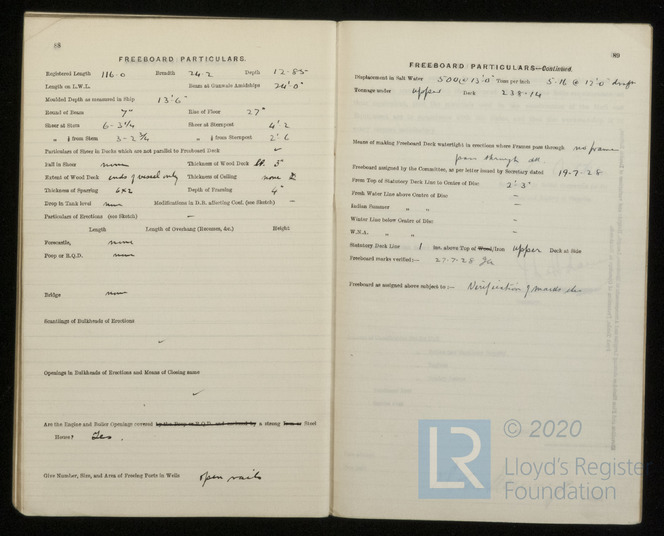 88
FREEBOARD PARTICULARS.
Registered Length 116·0 Breadth 24·2 Depth 12·85
Length on L.W.L. Beam at Gunwale Amidships 24'0"
Moulded Depth as measured in Ship 13'6"
Round of Beam 7" Rise of Floor 27"
Sheer at Stem 6-3¼ Sheer at Sternpost 4'2
" ⅛ from Stem 3-2¾ " ⅛ from Sternpost 2'6
Particulars of Sheer in Decks which are not parallel to Freeboard Deck ✓
Fall in Sheer none Thickness of Wood Deck 3"
Extent of Wood Deck ends of vessel only Thickness of Ceiling none
Thickness of Sparring 6x2 Depth of Framing 4"
Drop in Tank level none Modifications in D.B. affecting Coef. (see Sketch) —
Particulars of Erections (see Sketch) —
Length Length of Overhang (Recesses, &c.) Height
Forecastle, none
Poop or R.Q.D. none
Bridge none
Scantlings of Bulkheads of Erections
✓
Openings in Bulkheads of Erections and Means of Closing same
✓
Are the Engine and Boiler Openings covered by the Poop or R.Q.D. and enclosed by a strong Iron or Steel
House? Yes.
Give Number, Size, and Area of Freeing Ports in Wells open rails
89
FREEBOARD PARTICULARS—Continued.
Displacement in Salt Water 500 @ 13'0" Tons per inch 5·16 @ 12'0" draft
Tonnage under upper Deck 238·14
Means of making Freeboard Deck watertight in erections where Frames pass through no frames
pass through dk
Freeboard assigned by the Committee, as per letter issued by Secretary dated 19·7·28
From Top of Statutory Deck Line to Centre of Disc 2'3"
Fresh Water Line above Centre of Disc —
Indian Summer " " —
Winter Line below Centre of Disc —
W.N.A. " " —
Statutory Deck Line 1 ins. above Top of Wood/Iron upper Deck at Side
Freeboard marks verified:— 27·7·28
Freeboard as assigned above subject to:— Verification of marks
LR
© 2020
Lloyd's Register
Foundation